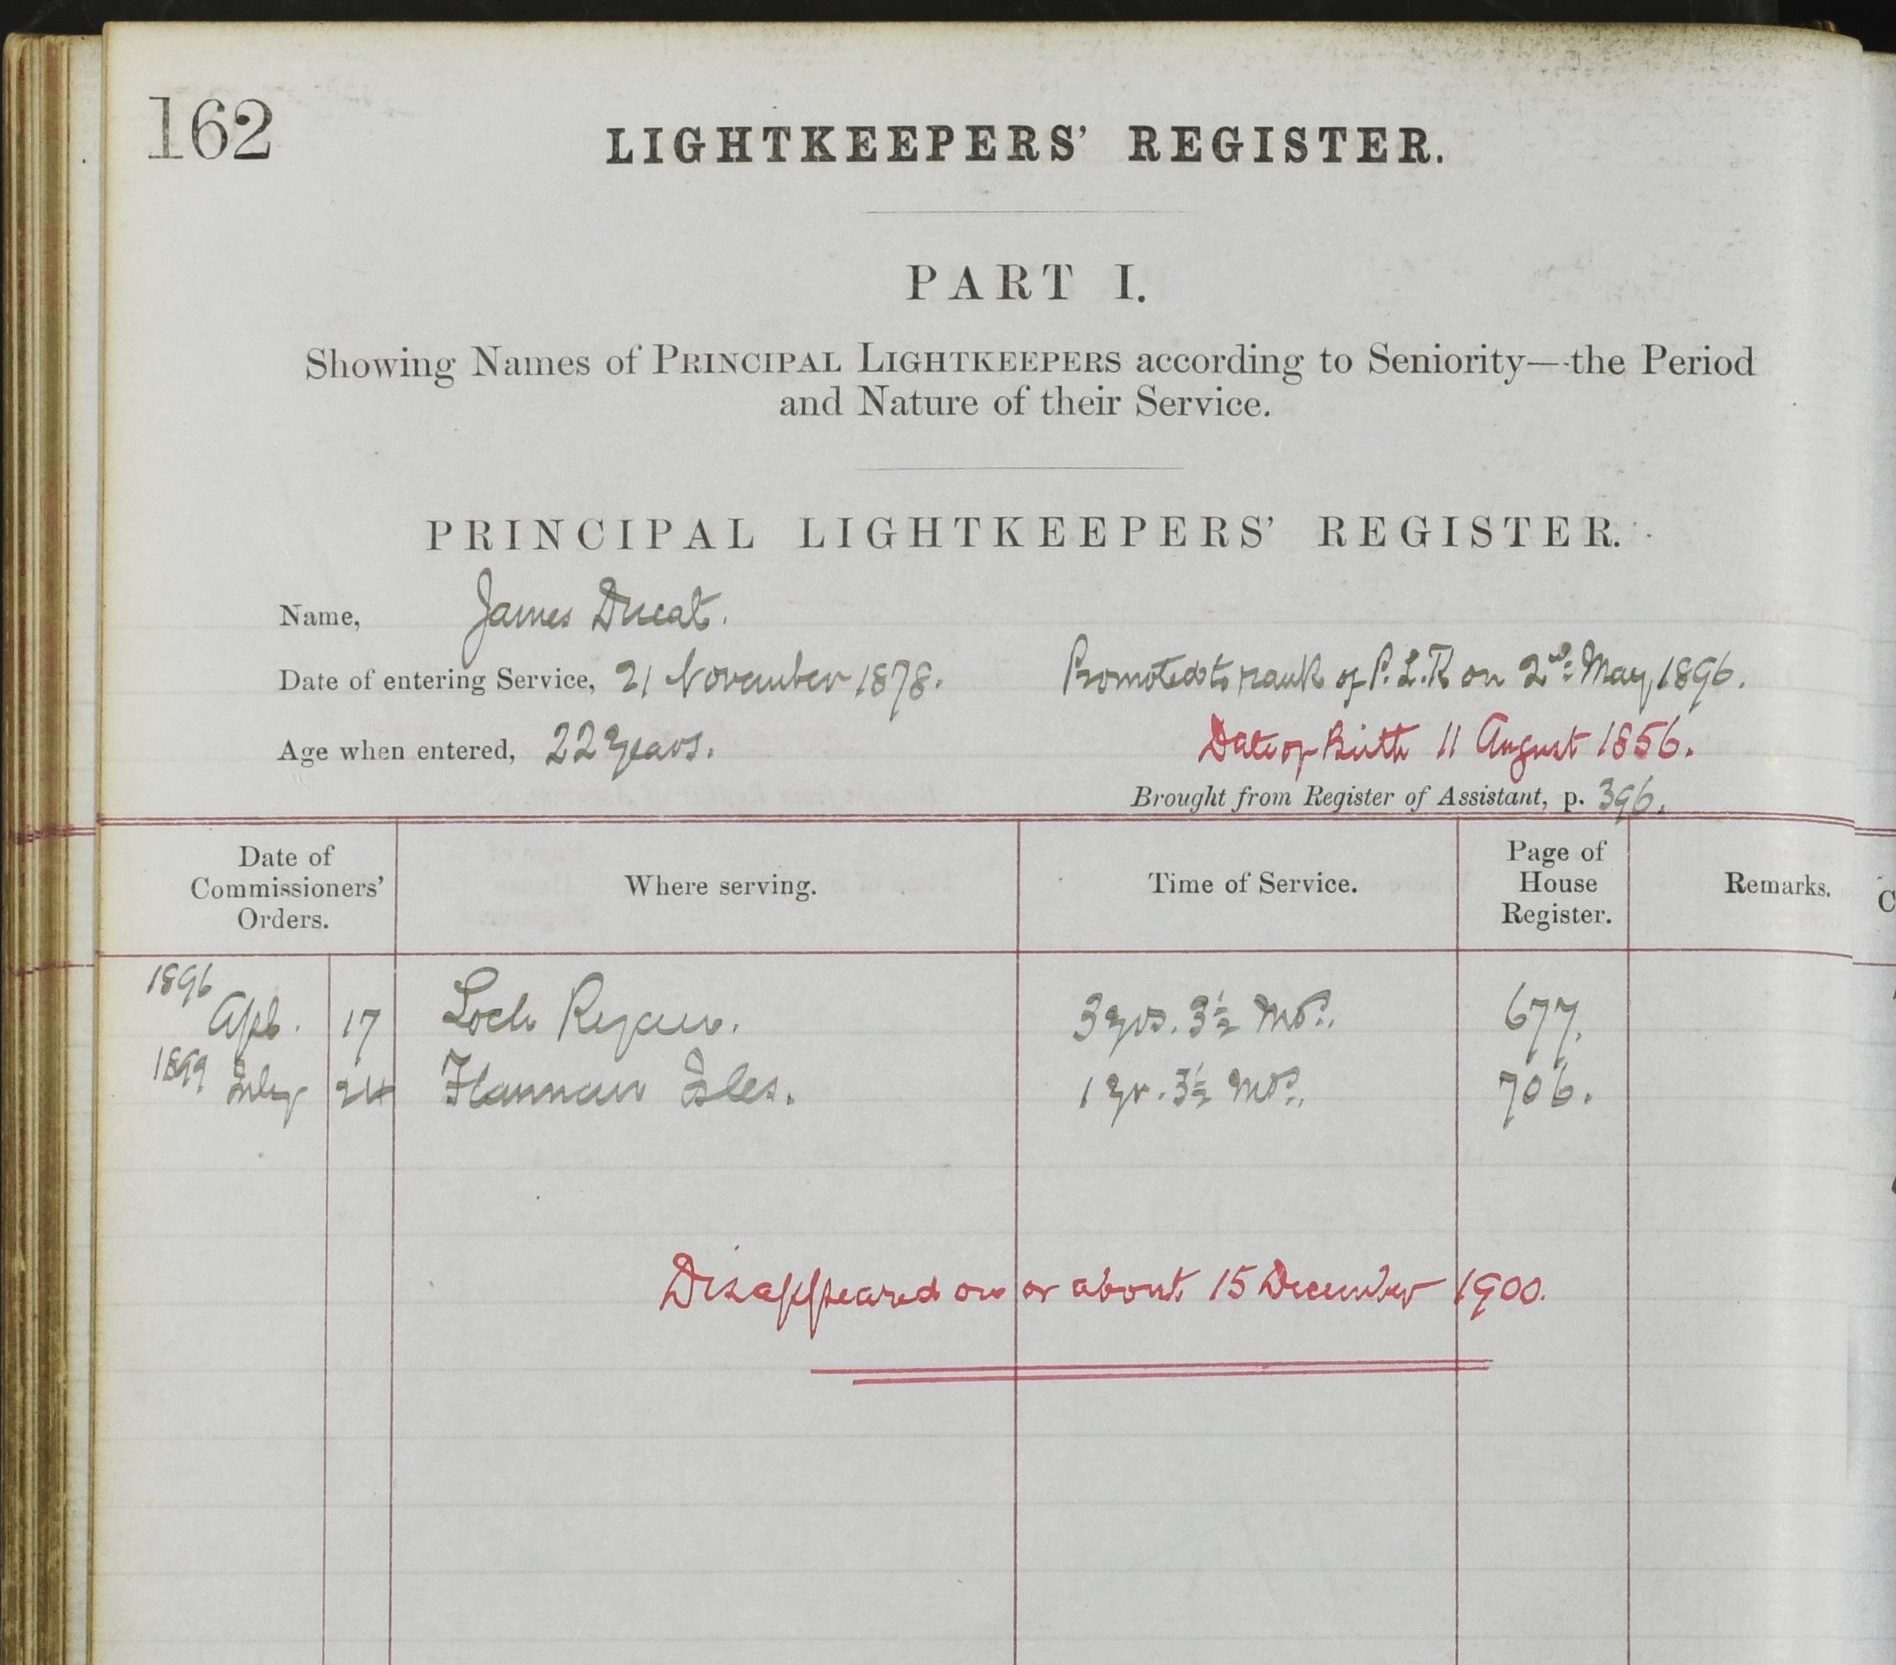 162
LIGHTKEEPERS' REGISTER.
PART I.
Showing Names of PRINCIPAL LIGHTKEEPERS according to Seniority—the Period
and Nature of their Service.
PRINCIPAL LIGHTKEEPERS' REGISTER.
Name, James Ducat.
Date of entering Service, 21 November 1878. Promoted to rank of P.L.K on 2nd May, 1896.
Age when entered, 22 years. Date of Birth 11 August 1856.
Brought from Register of Assistant, p. 396.
Date of Commissioners' Orders. Where serving. Time of Service. Page of House Register. Remarks.
1896
Apl. 17 Loch Ryan. 3 yrs. 3½ Mos. 677.
1899 July 24 Flannan Isles. 1 yr. 3½ Mos. 706.
Disappeared on or about 15 December 1900.